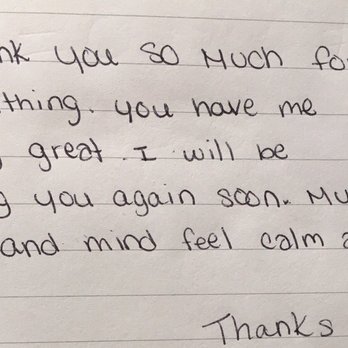 nk you so Much fo
thing. you have me
g great. I will be
g you again soon. Mu
and mind feel calm a
Thanks